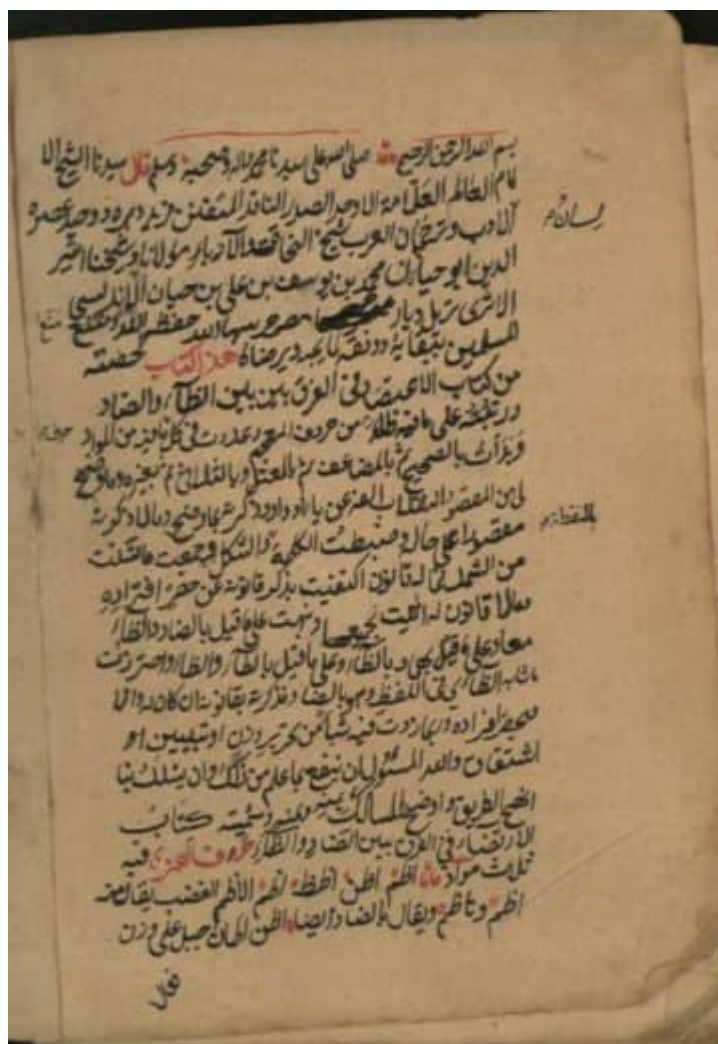 بسم الله الرحمن الرحيم صلى الله على سيدنا محمد وآله وصحبه وسلم قال سيدنا الشيخ الا
مام العالم العلامة الاوحد الصدر الناقد المتفنن فريد دهره ووحيد عصره
لسان
الادب وترجمان العرب شيخ النحاة والادباء مولانا وشيخنا اثير
الدين ابو حيان محمد بن يوسف بن علي بن حيان الاندلسي
الاثري نزيل ديار مصر حرسها الله حفظه الله ومتع
المسلمين ببقائه ووفقه لما يجد برضاه هذا كتاب لخصته
من كتاب الاعتضاد في الفرق بين الظاء والضاد
ورتبته على ما فيه ظاء من حروف المعجم وعددت في كل حرف من المواد
وبدأت بالصحيح ثم بالمضاعف ثم بالمعتل وبالثلاثي ثم بغيره وما وضح
لي من المقصور انقلاب الفه عن ياء او واو ذكرته بما وضح ومالا ذكرته
بالنقط
مقصورا على حاله وضبطت الكلمة والشكل فجمعت ما تشتت
من الشمل فما له قانون اكتفيت بذكر قانونه عن حصر افراده
ومالا قانون له اتيت بجميعها ونبهت على ما قيل بالضاد والظاء
معا وعلى ما قيل بالظاء وعلى ما قيل بالطاء والظاء واحترزت
الظائي في اللفظ وهو بالضاد فذكرته بقانونه ان كان له والا
فبحصر افراده وربما زدت فيه شيا من تحرير وزن او تبيين او
اشتقاق والله المسئول ان ينفع بما علم من ذلك وان يسلك بنا
انهج الطريق واوضح المسالك بمنه وسميته كتاب
الارتضاء في الفرق بين الضاد والظاء حرف الهمزة فيه
ثلاث مواد اظم اظن الاظم الغضب يقال منه
اظم وتاظم ويقال بالضاد ايضا اظن اظان جبل على وزن
فعال